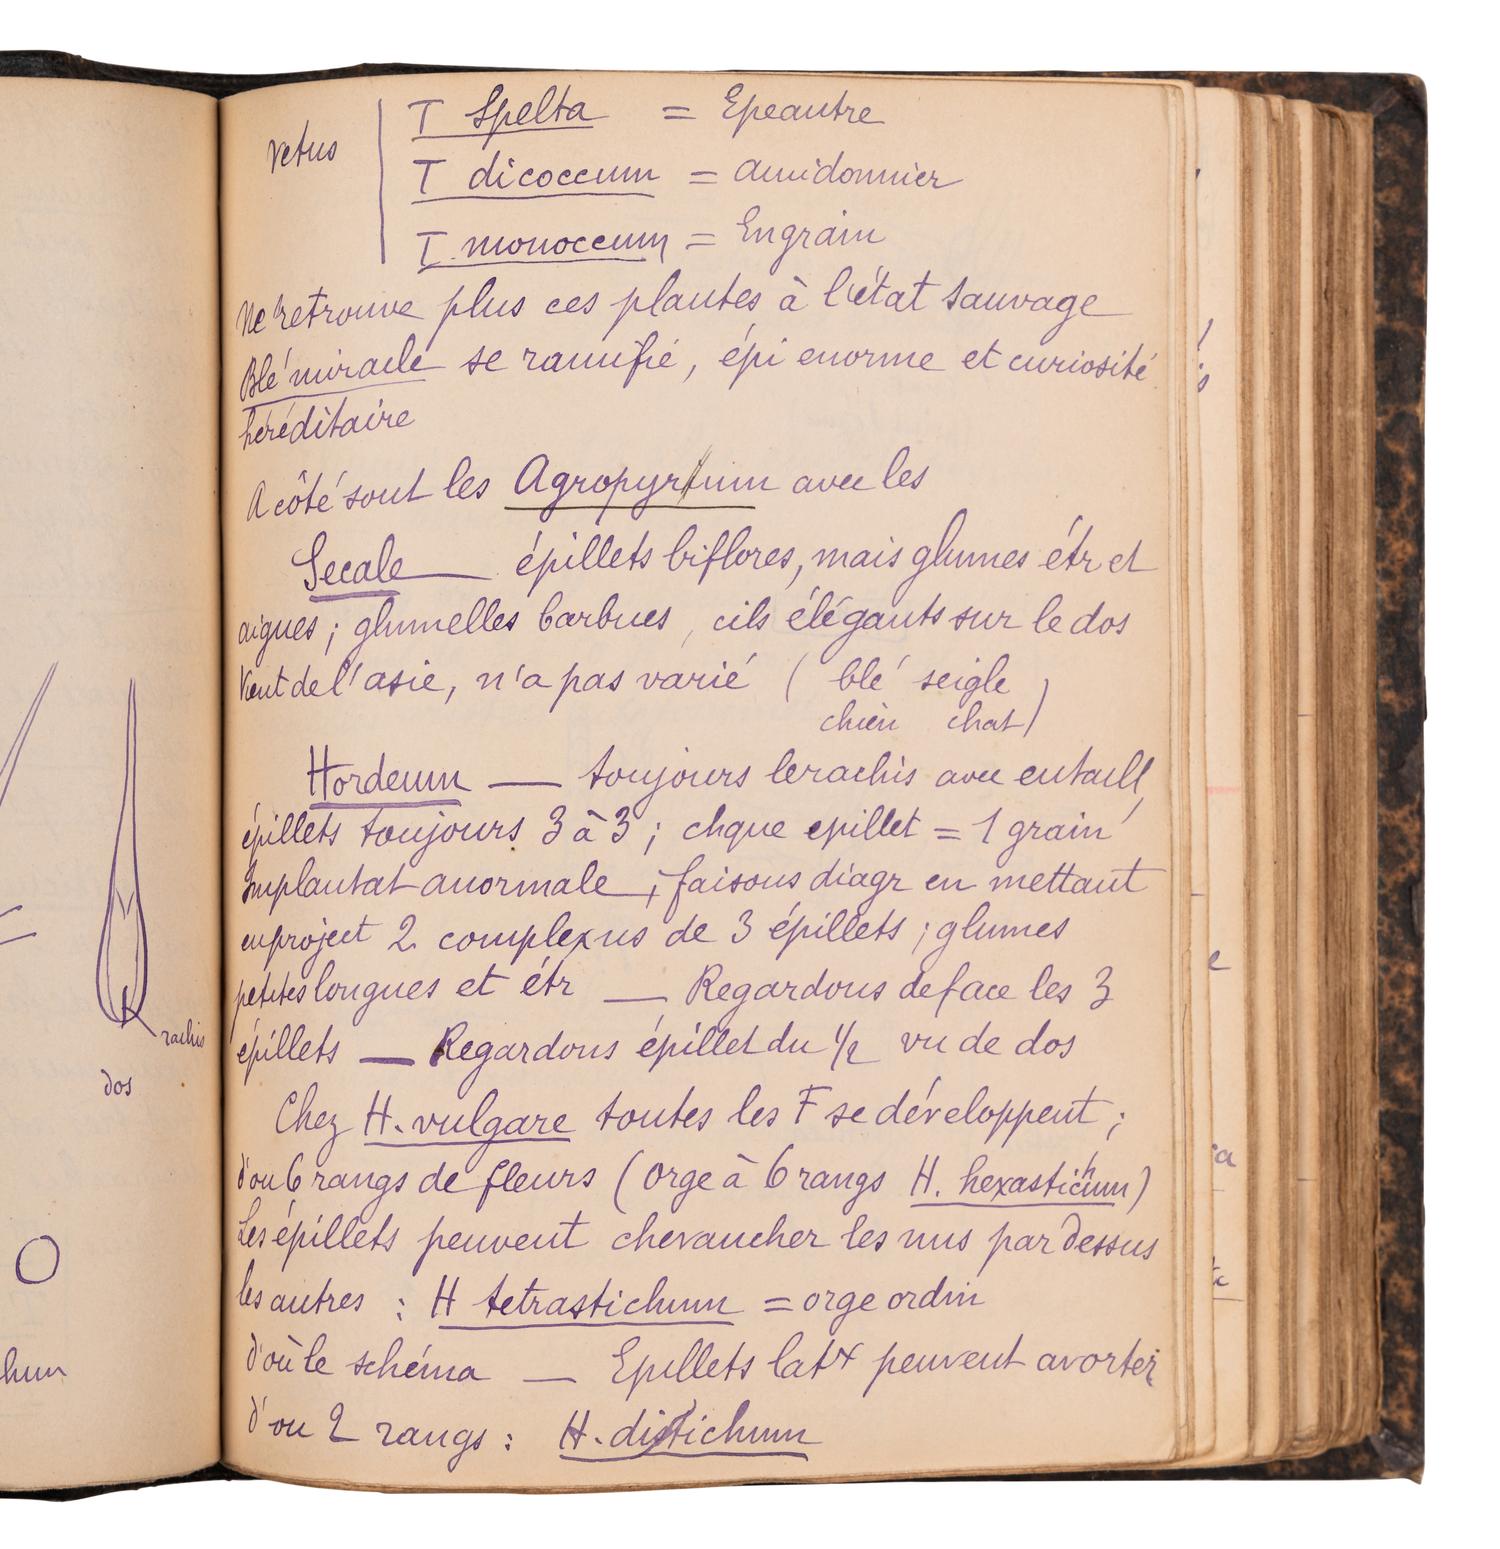 vetus
T Spelta = Epeautre
T dicoccum = amidonnier
T. monoccum = Engrain
Ne retrouve plus ces plantes à l'état sauvage
Blé miracle se ramifié, épi enorme et curiosité
héréditaire
A côté sont les Agropyrum avec les
Secale — épillets biflores, mais glumes étr et
aigues ; glumelles barbues, cils élégants sur le dos
Vient de l'asie, n'a pas varié ( blé seigle
chien chat)
Hordeum — toujours le rachis avec entaill,
épillets toujours 3 à 3 ; chque epillet = 1 grain
Implantat anormale ; faisons diagr en mettant
en project 2 complexus de 3 épillets ; glumes
petites longues et étr — Regardons de face les 3
épillets — Regardons épillet du 1/2 vu de dos
Chez H. vulgare toutes les F se développent ;
d'ou 6 rangs de fleurs (orge à 6 rangs H. hexastichum)
Les épillets peuvent chevaucher les uns par dessus
les autres : H tetrastichum = orge ordin
d'où le schéma — Epillets latx peuvent avorter
d'ou 2 rangs : H. distichum
rachis
dos
hum